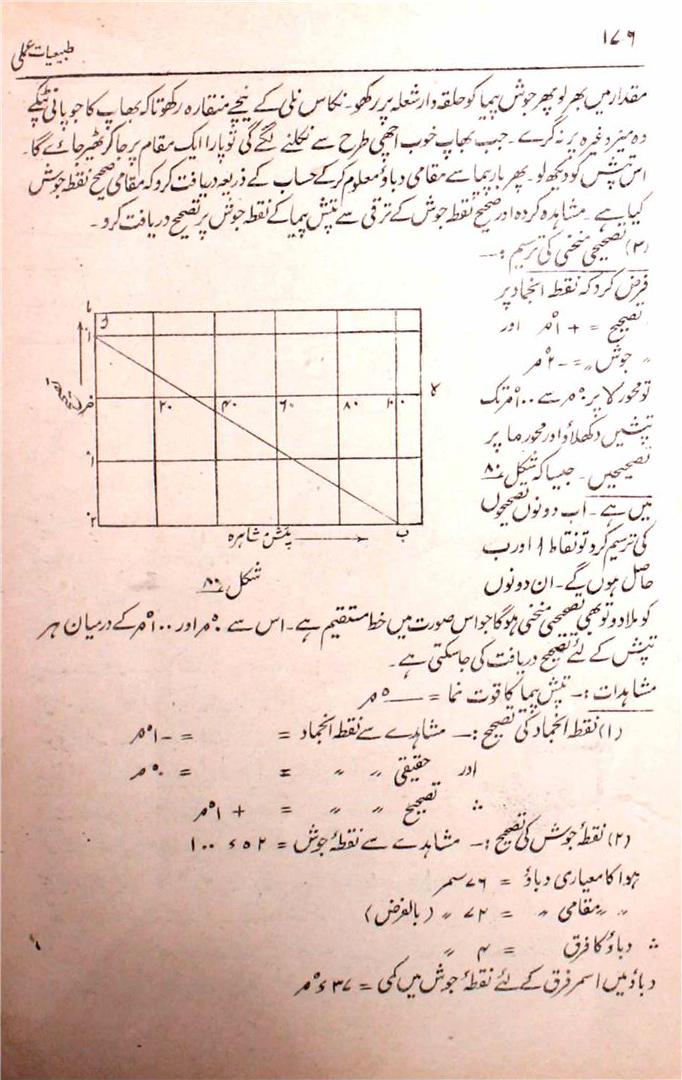 ۱۷۶
طبیعیات عملی
مقدار میں بھر لو پھر جوش پیما کو حلقہ دار شعلہ پر رکھو۔ نکاس نلی کے نیچے منقارہ رکھو تاکہ بھاپ کا جو پانی ٹپکے
وہ میز وغیرہ پر نہ گرے۔ جب بھاپ خوب اچھی طرح سے نکلنے لگے گی تو پارا ایک مقام پر جا کر ٹھیر جائے گا۔
اس تپش کو دیکھ لو۔ پھر بار پیما سے مقامی دباؤ معلوم کر کے حساب کے ذریعہ دریافت کرو کہ مقامی صحیح نقطہ جوش
کیا ہے۔ مشاہدہ کردہ اور صحیح نقطہ جوش کے فرق سے تپش پیما کے نقطہ جوش پر تصحیح دریافت کرو۔
(۳) تصحیحی منحنی کی ترسیم :۔
فرض کرو کہ نقطہ انجماد پر
تصحیح = + ۱°م اور
〃 جوش 〃 = - ۲°م
تو محور لا پر ۰°م سے ۱۰۰°م تک
تپشیں دکھلاؤ اور محور ما پر
تصحیحیں۔ جیسا کہ شکل ۸۰
میں ہے۔ اب دونوں تصحیحوں
کی ترسیم کرو تو نقاط ا اور ب
حاصل ہوں گے۔ ان دونوں
ما
و
۱
لا
۲۰ ۴۰ ۶۰ ۸۰ ۱۰۰
۱
۲
ب
تپش مشاہرہ
شکل ۸۰
کو ملا دو تو یہی تصحیحی منحنی ہوگا جو اس صورت میں خط مستقیم ہے۔ اس سے ۰°م اور ۱۰۰°م کے درمیان ہر
تپش کے لئے تصحیح دریافت کی جا سکتی ہے۔
مشاہدات :۔ تپش پیما کا قوت نما = ——°م
(۱) نقطہ انجماد کی تصحیح :۔ مشاہدے سے نقطہ انجماد = = - ۱°م
اور حقیقی 〃 〃 = = ۰°م
∴ تصحیح 〃 〃 = + ۱°م
(۲) نقطۂ جوش کی تصحیح :۔ مشاہدے سے نقطۂ جوش = ۵۲ء۱۰۰
ہوا کا معیاری دباؤ = ۷۶ سمر
〃 〃 مقامی 〃 = ۷۲ 〃 (بالفرض)
∴ دباؤ کا فرق = ۴ 〃
دباؤ میں ا سمر فرق کے لئے نقطۂ جوش میں کمی = ۳۷ء°م